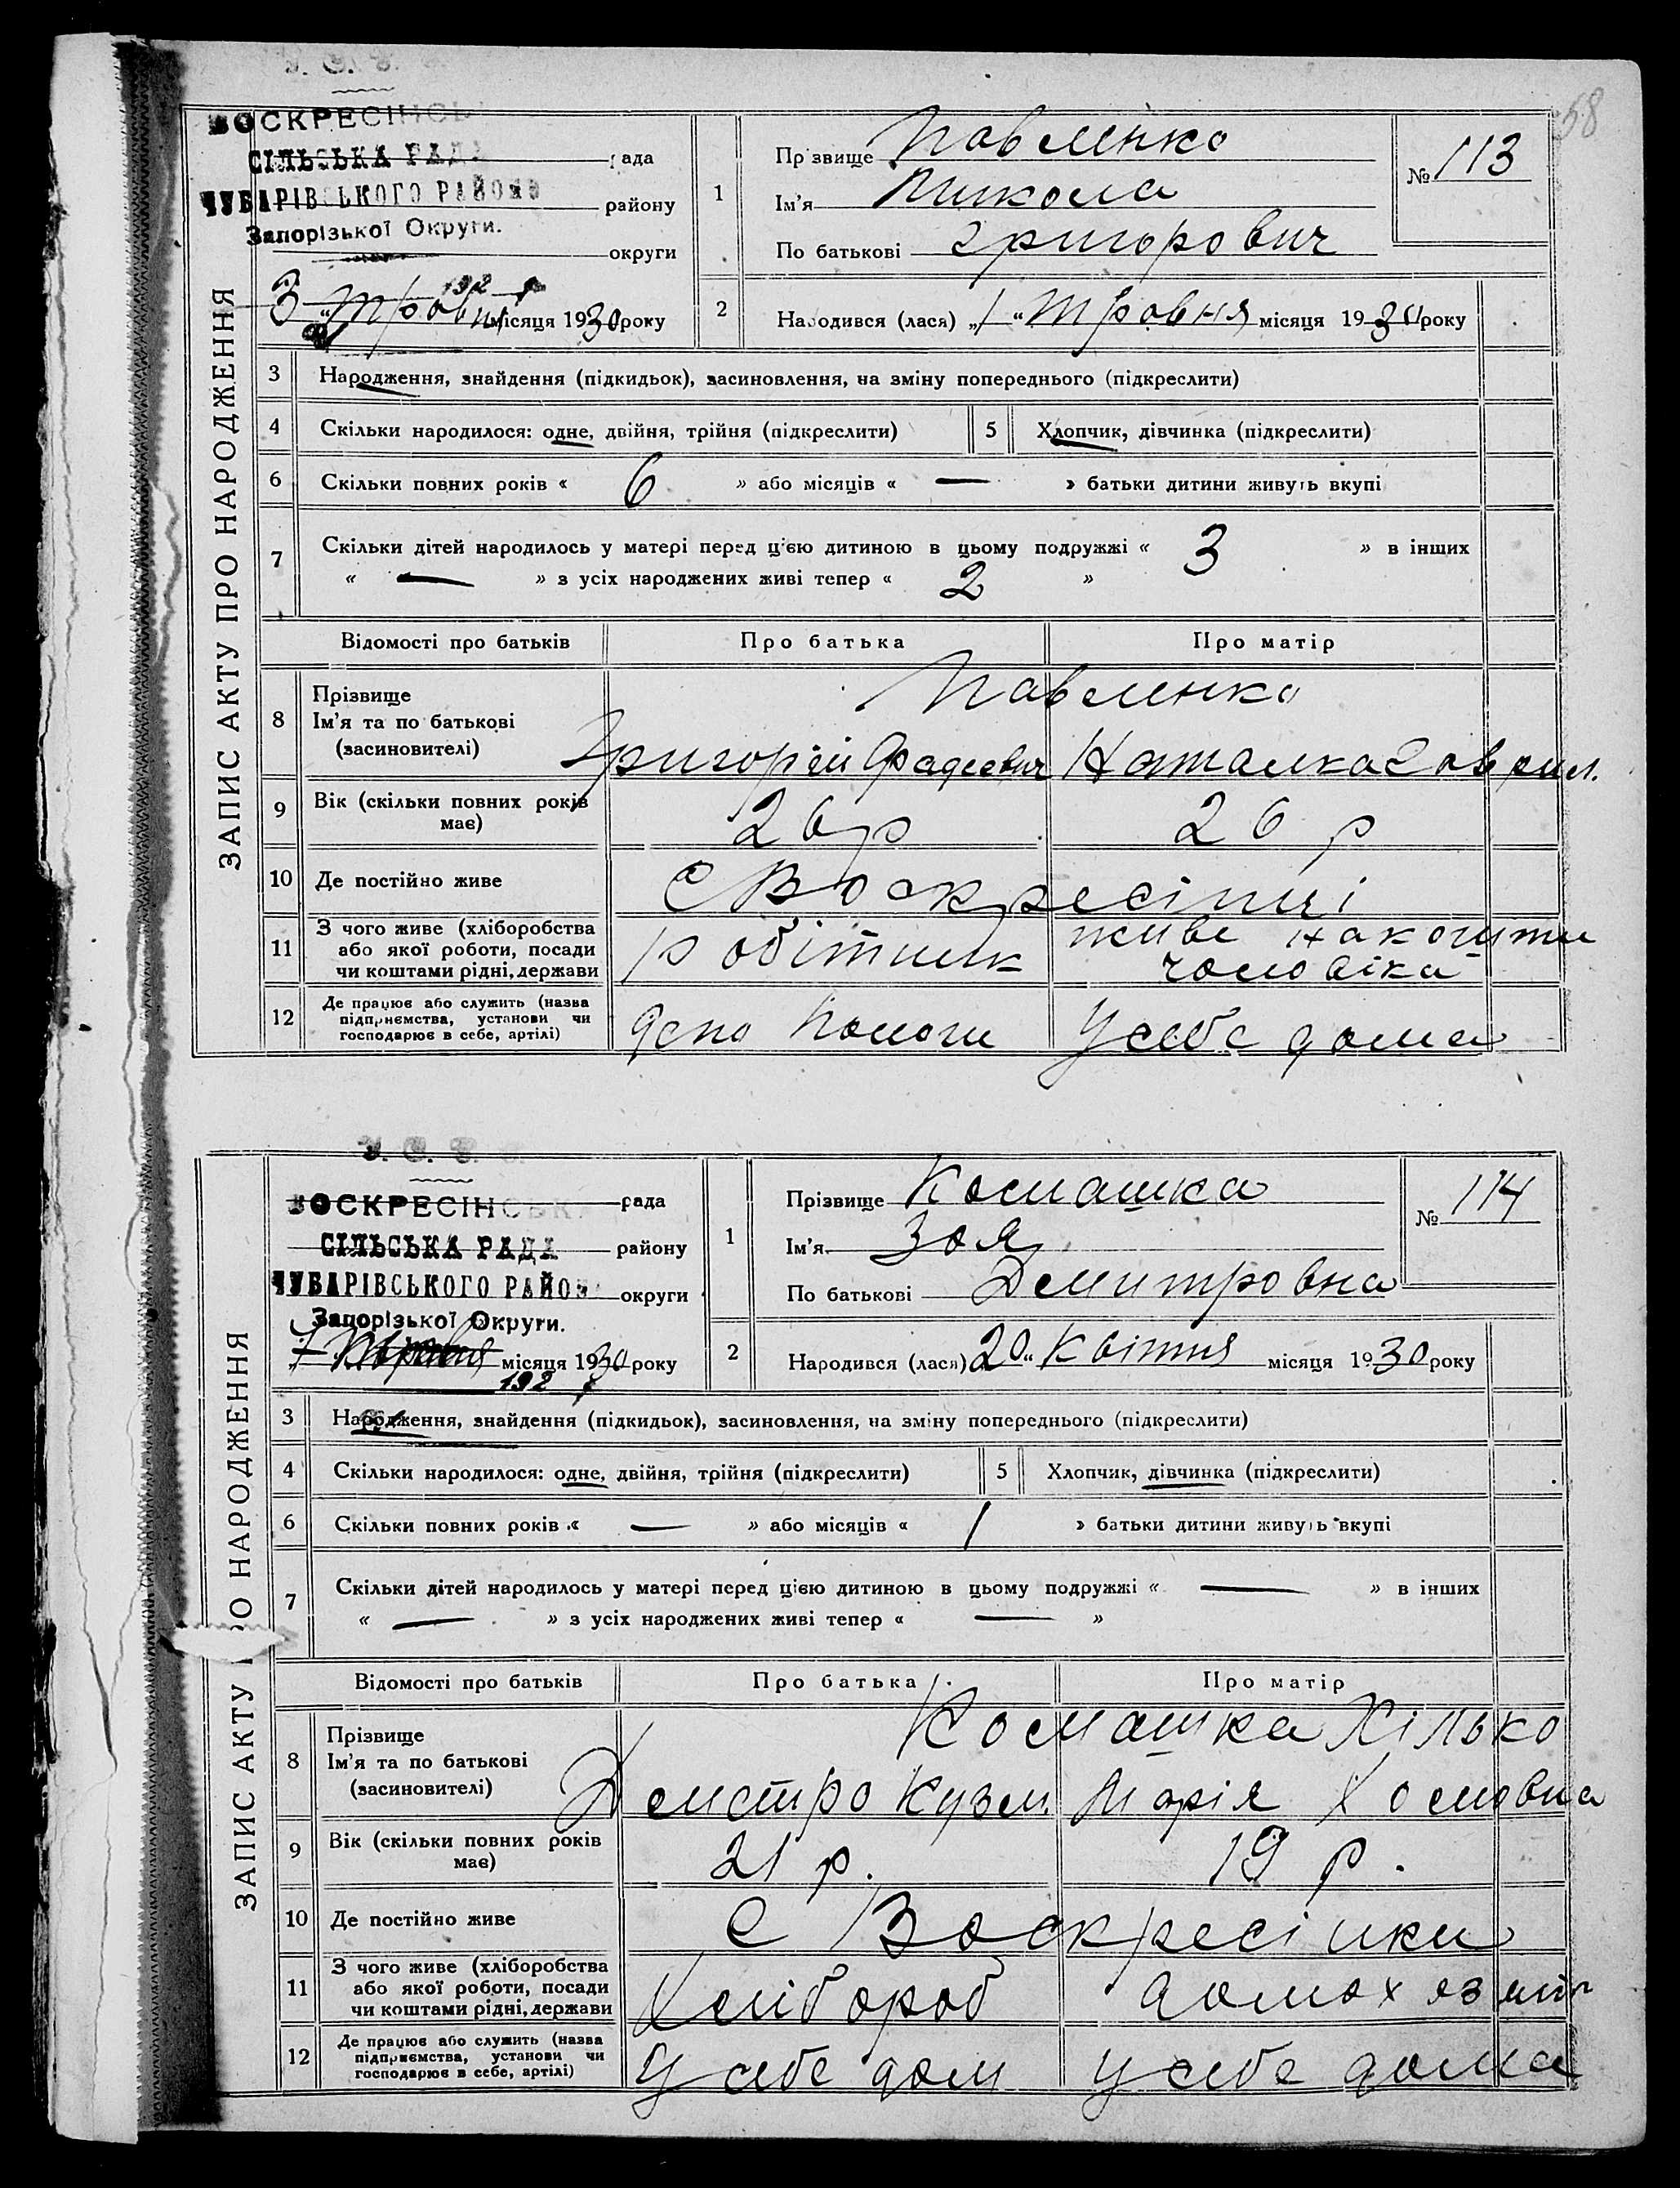 58
ЗАПИС АКТУ ПРО НАРОДЖЕННЯ
У. С.
ВОСКРЕСІНСЬ
СІЛЬСЬКА РАДА рада
ЧУБАРІВСЬКОГО РАЙОНУ району
Запорізької Округи.
округи
192 р
3 " Травня місяця 1930 року
1 Прізвище Павленко
Ім'я Микола
По батькові Григорович
№ 113
2 Народився (лася) „1" Травня місяця 1930 року
3 Народження, знайдення (підкидьок), засиновлення, на зміну попереднього (підкреслити)
4 Скільки народилося: одне, двійня, трійня (підкреслити) 5 Хлопчик, дівчинка (підкреслити)
6 Скільки повних років « 6 » або місяців « — » батьки дитини живуть вкупі
7 Скільки дітей народилось у матері перед цією дитиною в цьому подружжі « 3 » в інших
« — » з усіх народжених живі тепер « 2 »
Відомості про батьків Про батька Про матір
8 Прізвище Павленко
Ім'я та по батькові
(засиновителі) Григорій Фадеевич Наталка Гаврил.
9 Вік (скільки повних років має) 26 р 26 р
10 Де постійно живе С Воскресінці
11 З чого живе (хліборобства
або якої роботи, посади
чи коштами рідні, держави робітник живе на кошти
чоловіка
12 Де працює або служить (назва
підприємства, установи чи
господарює в себе, артілі) депо Пологи У себе дома
ЗАПИС АКТУ ПРО НАРОДЖЕННЯ
У. С.
ВОСКРЕСІНСЬК рада
СІЛЬСЬКА РАДА району
ЧУБАРІВСЬКОГО РАЙОН округи
Запорізької Округи.
7 Травня місяця 1930 року
192 р
1 Прізвище Комашка
Ім'я Зоя
По батькові Демитровна
№ 114
2 Народився (лася) 20 " Квітня місяця 1930 року
3 Народження, знайдення (підкидьок), засиновлення, на зміну попереднього (підкреслити)
4 Скільки народилося: одне, двійня, трійня (підкреслити) 5 Хлопчик, дівчинка (підкреслити)
6 Скільки повних років « — » або місяців « 1 » батьки дитини живуть вкупі
7 Скільки дітей народилось у матері перед цією дитиною в цьому подружжі « — » в інших
« — » з усіх народжених живі тепер « — »
Відомості про батьків Про батька Про матір
8 Прізвище Комашка Хілько
Ім'я та по батькові
(засиновителі) Демітро Кузм. Марія Хомовна
9 Вік (скільки повних років має) 21 р. 19 р.
10 Де постійно живе С Воскресінки
11 З чого живе (хліборобства
або якої роботи, посади
чи коштами рідні, держави Хлібороб домох
12 Де працює або служить (назва
підприємства, установи чи
господарює в себе, артілі) У себе дом У себе дома